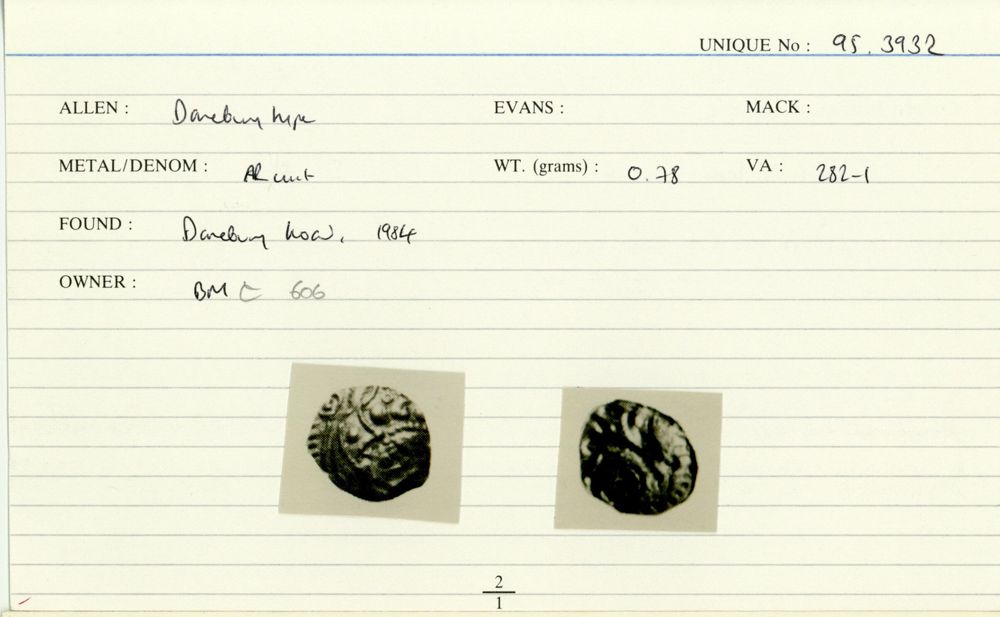 UNIQUE No : 95.3932
ALLEN : Danebury type EVANS : MACK :
METAL/DENOM : AR unit WT. (grams) : 0.78 VA : 282-1
FOUND : Danebury hoard, 1984
OWNER : BMC 606
2
1